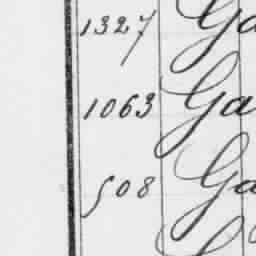 1327 Ga
1063 Ga
508 Ga